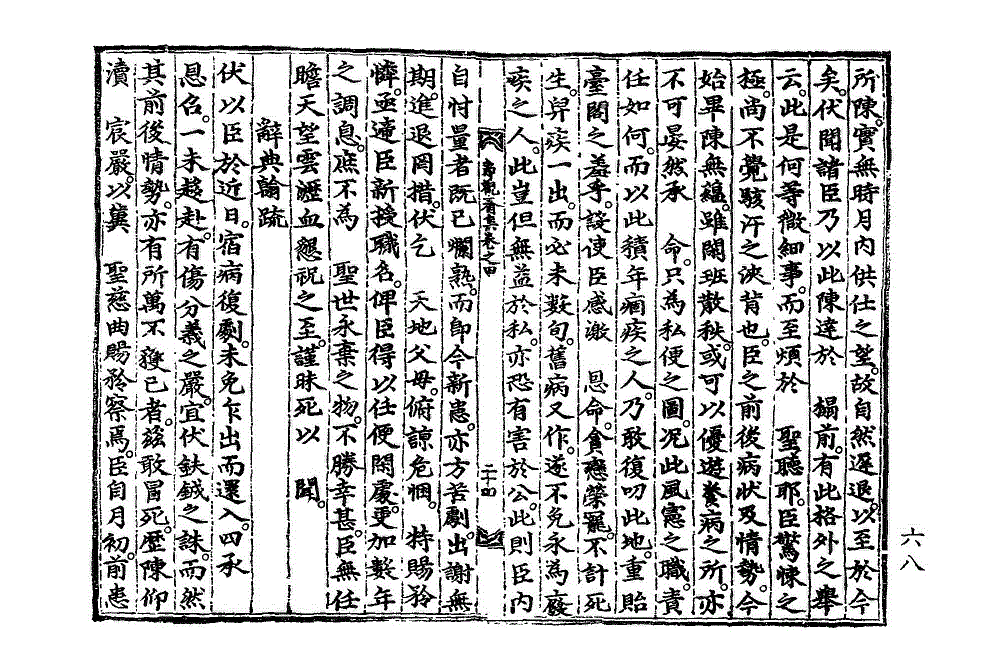 所陳。實無時月內供仕之望。故自然遲退。以至於今
矣。伏聞諸臣乃以此陳達於　榻前。有此格外之舉
云。此是何等微細事。而至煩於　聖聽耶。臣驚悚之
極。尚不覺駭汗之浹背也。臣之前後病狀及情勢。今
始畢陳無蘊。雖閑班散秩。或可以優遊養病之所。亦
不可晏然承　命。只為私便之圖。况此風憲之職。責
任如何。而以此積年痼疾之人。乃敢復叨此地。重貽
臺閣之羞乎。設使臣感激　恩命。貪戀榮寵。不計死
生。舁疾一出。而必未數旬。舊病又作。遂不免永為癈
疾之人。此豈但無益於私。亦恐有害於公。此則臣內
二十四
自忖量者既已爛熟。而即今新患。亦方苦劇。出謝無
期。進退罔措。伏乞　天地父母。俯諒危悃。　特賜矜
憐。亟遞臣新授職名。俾臣得以任便閑處。更加數年
之調息。庶不為　聖世永棄之物。不勝幸甚。臣無任
瞻天望雲瀝血懇祝之至。謹昧死以　聞。
辭典翰疏
伏以臣於近日。宿病復劇。未免乍出而還入。四承
恩名。一未趍赴。有傷分義之嚴。宜伏鈇鉞之誅。而然
其前後情勢。亦有所萬不獲已者。玆敢冒死。歷陳仰
瀆　宸嚴。以冀　聖慈曲賜矜察焉。臣自月初。前患
六八